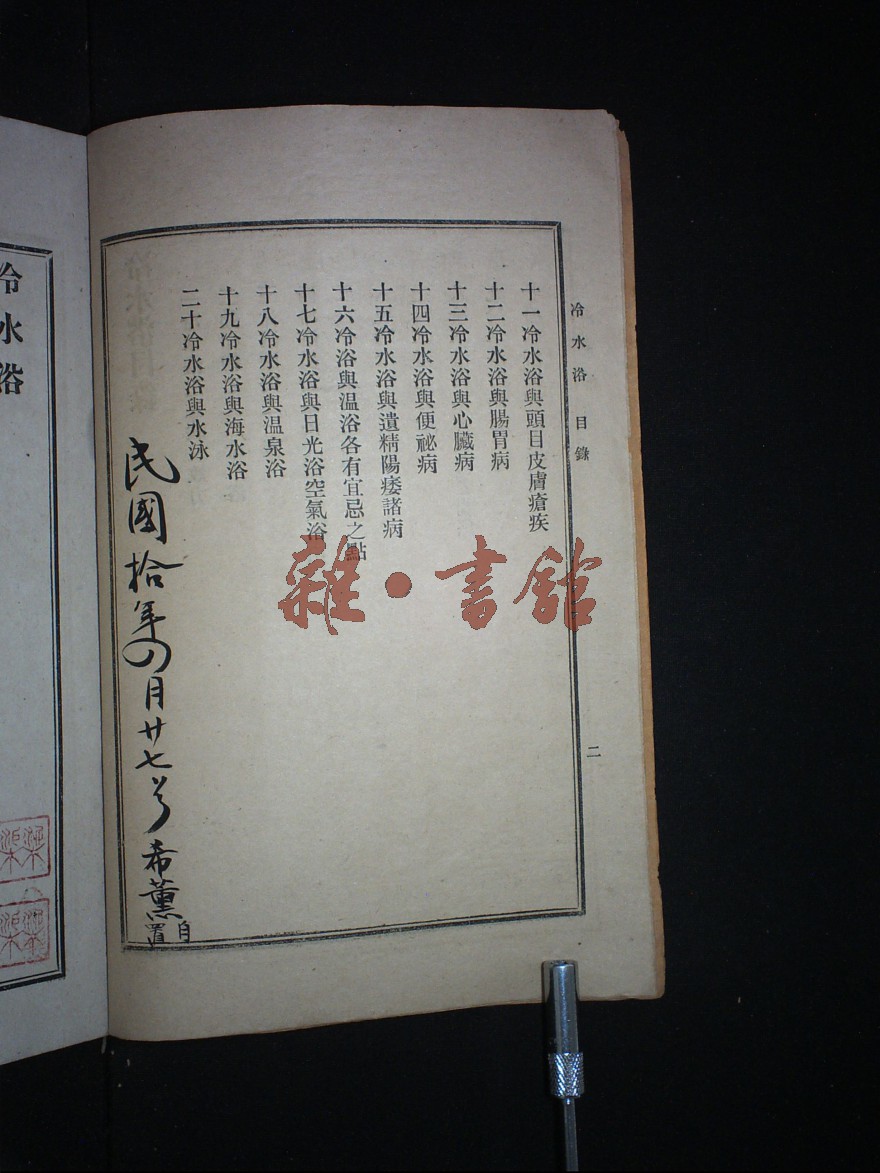 冷水浴 目錄
十一冷水浴與頭目皮膚瘡疾
十二冷水浴與腸胃病
十三冷水浴與心臟病
十四冷水浴與便祕病
十五冷水浴與遺精陽痿諸病
十六冷浴與温浴各有宜忌之點
十七冷水浴與日光浴空氣浴
十八冷水浴與温泉浴
十九冷水浴與海水浴
二十冷水浴與水泳
民國拾年四月廿七号 希薰自置
二
冷水浴
雜·書館